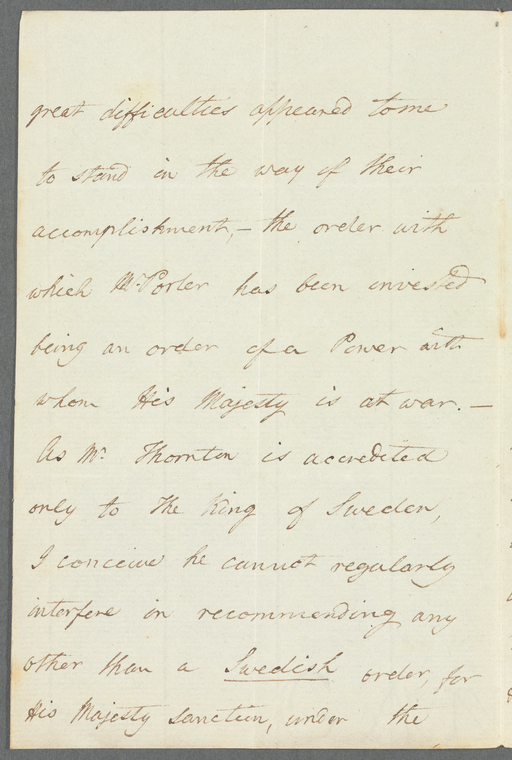 great difficulties appeared to me
to stand in the way of their
accomplishment, – the order with
which Mr. Porter has been invested
being an order of a Power with
whom His Majesty is at war. –
As Mr. Thornton is accredited
only to The King of Sweden,
I conceive he cannot regularly
interfere in recommending any
other than a Swedish order, for
His Majesty sanction, under the